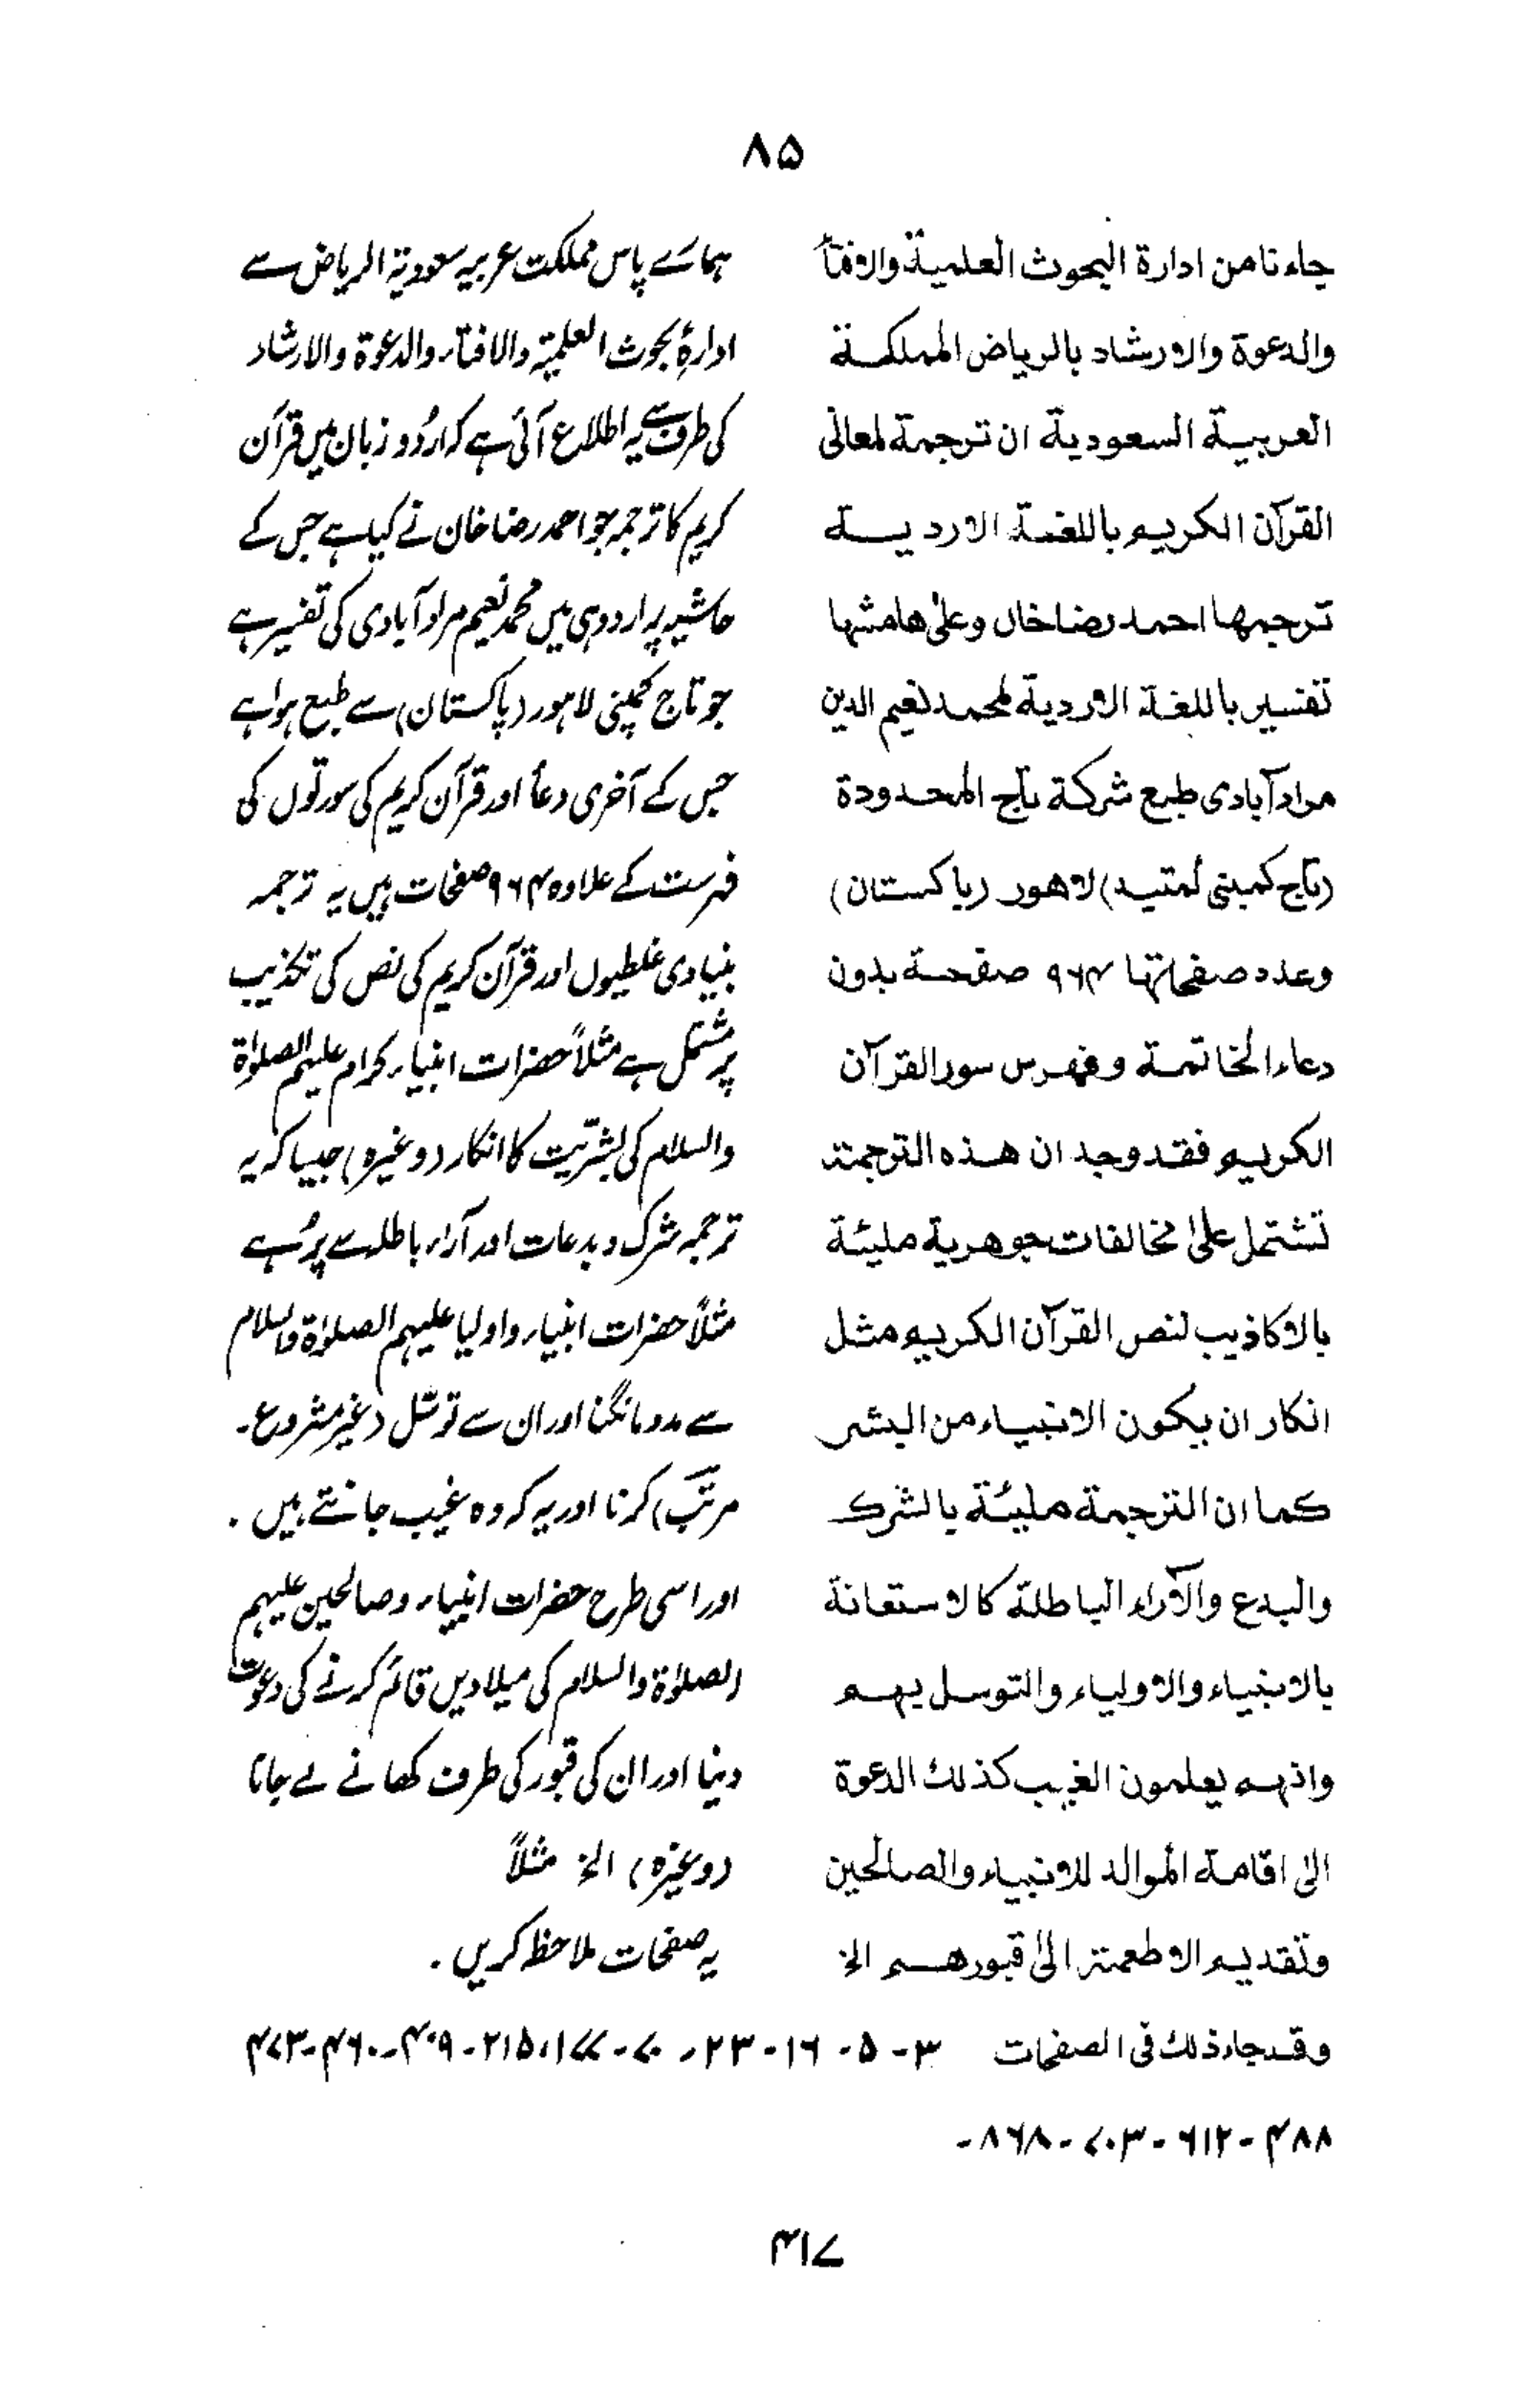 ۸۵
جاءنا من ادارة البحوث العلمية والافتاً
والدعوة والارشاد بالرياض المملكة
العربية السعودية ان ترجمة لمعانی
القرآن الكريم باللغة الاردية
ترجمها احمد رضاخان وعلیٰ هامشها
تفسير باللغة الاردية لمحمد نعيم الدين
مراد آبادی طبع شركة تاج المحدودة
(تاج كمبنی لمتيد) لاهور (پاکستان)
وعدد صفحاتها ۹۶۴ صفحة بدون
دعاء الخاتمة وفهرس سور القرآن
الكريم فقد وجد ان هذه الترجمة
تشتمل علیٰ مخالفات جوهرية مليئة
بالاكاذيب لنص القرآن الكريم مثل
انكار ان يكون الانبياء من البشر
كما ان الترجمة مليئة بالشرك
والبدع والآراء الباطلة كالاستعانة
بالانبياء والاولياء والتوسل بهم
وانهم يعلمون الغيب كذلك الدعوة
الی اقامة الموالد للانبياء والصالحين
وتقديم الاطعمة الیٰ قبورهم الخ
ہمارے پاس مملکت عربیہ سعودیۃ الریاض سے
ادارۂ بحوث العلمیۃ والافتاء والدعوۃ والارشاد
کی طرف سے یہ اطلاع آئی ہے کہ اردُو زبان میں قرآن
کریم کا ترجمہ جو احمد رضا خان نے کیا ہے جس کے
حاشیہ پر اردو ہی میں محمد نعیم مراد آبادی کی تفسیر ہے
جو تاج کمپنی لاہور (پاکستان) سے طبع ہوا ہے
جس کے آخری دعأ اور قرآن کریم کی سورتوں کی
فہرست کے علاوہ ۹۶۴ صفحات ہیں یہ ترجمہ
بنیادی غلطیوں اور قرآن کریم کی نص کی تکذیب
پر مشتمل ہے مثلاً حضرات انبیاء کرام علیہم الصلوٰۃ
والسلام کی بشریّت کا انکار (وغیرہ) جیسا کہ یہ
ترجمہ شرک و بدعات اور آراء باطلہ سے پُر ہے
مثلاً حضرات انبیاء و اولیا علیہم الصلوٰۃ والسلام
سے مدد مانگنا اور ان سے توسّل (غیر مشروع۔
مرتبؔ) کرنا اور یہ کہ وہ غیب جانتے ہیں .
اور اسی طرح حضرات انبیاء و صالحین علیہم
الصلوٰۃ والسلام کی میلادیں قائم کرنے کی دعوت
دینا اور ان کی قبور کی طرف کھانے لے جانا
(وغیرہ) الخ مثلاً
یہ صفحات ملاحظہ کریں .
وقد جاء ذلك فی الصفحات ۳-۵-۱۶-۲۳-۷۰-۱۷۷،۲۱۵-۴۰۹-۴۶۰-۴۷۳
۴۸۸-۶۱۲-۷۰۳-۸۶۸-
۴۱۷